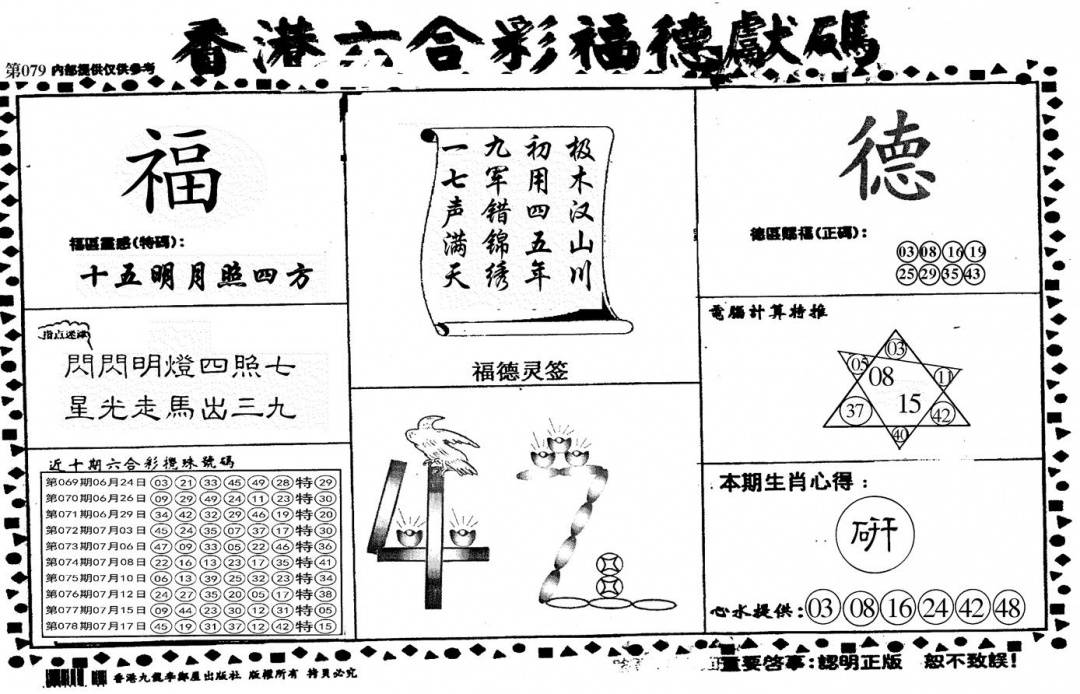 香港六合彩福德獻碼
第079 内部提供仅供参考
福
福區靈感(特碼):
十五明月照四方
指点迷津
閃閃明燈四照七
星光走馬出三九
近十期六合彩攪珠號碼
第069期06月24日 03 21 33 45 49 28 特 29
第070期06月26日 09 29 49 24 11 23 特 30
第071期06月29日 34 42 32 29 46 19 特 20
第072期07月03日 45 24 35 07 37 17 特 30
第073期07月06日 47 09 33 05 22 46 特 36
第074期07月08日 22 16 13 23 17 35 特 41
第075期07月10日 06 13 39 25 32 23 特 34
第076期07月12日 24 27 35 20 05 17 特 38
第077期07月15日 09 44 23 30 12 31 特 05
第078期07月17日 45 19 31 37 12 42 特 15
极木汉山川
初用四五年
九军错锦绣
一七声满天
福德灵签
德
德區賜福(正碼):
03 08 16 19
25 29 35 43
電腦計算特推
03
05 08 11
37 15 42
40
本期生肖心得:
研
心水提供: 03 08 16 24 42 48
香港九龍李鄭屋出版社 版權所有 拷貝必究
重要啓事:認明正版 恕不致誤!